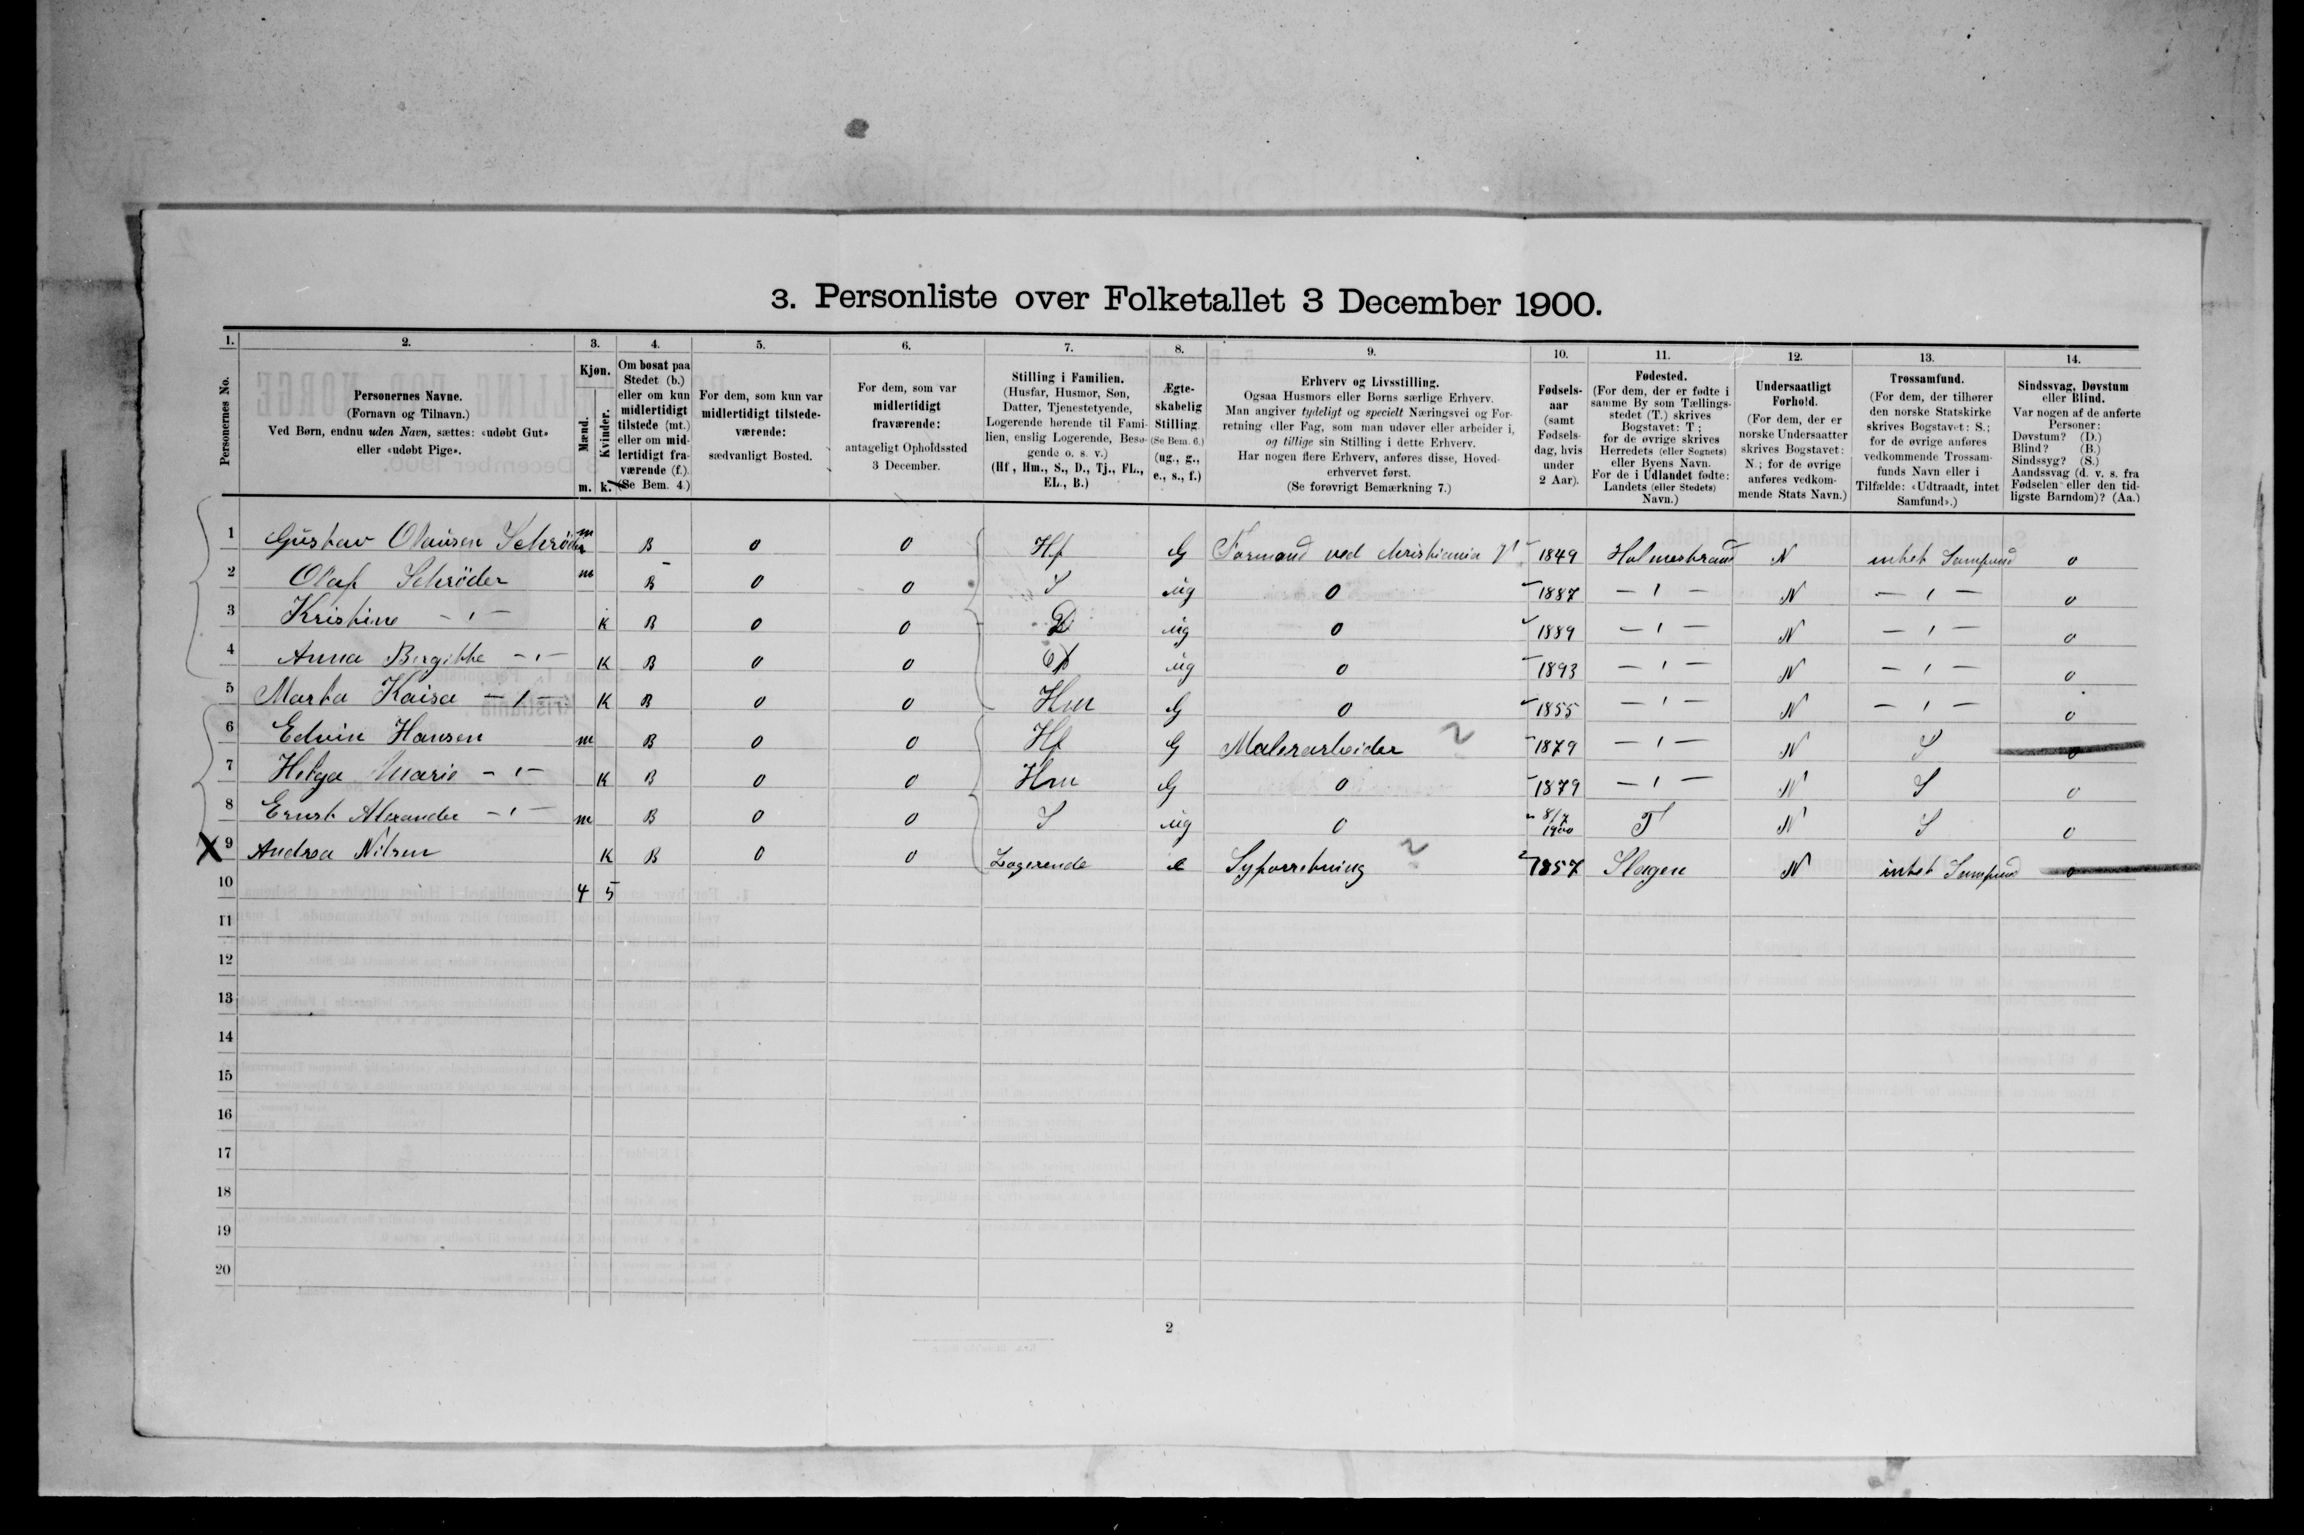 3. Personliste over Folketallet 3 December 1900.
1. 2. 3. 4. 5. 6. 7. 8. 9. 10. 11. 12. 13. 14.
Personernes No.
Personernes Navne.
(Fornavn og Tilnavn.)
Ved Børn, endnu uden Navn, sættes: «udøbt Gut»
eller «udøbt Pige».
Kjøn.
Mænd.
Kvinder.
m. k.
Om bosat paa
Stedet (b.)
eller om kun
midlertidigt
tilstede (mt.)
eller om mid-
lertidigt fra-
værende (f.).
(Se Bem. 4.)
For dem, som kun var
midlertidigt tilstede-
værende:
sædvanligt Bosted.
For dem, som var
midlertidigt
fraværende:
antageligt Opholdssted
3 December.
Stilling i Familien.
(Husfar, Husmor, Søn,
Datter, Tjenestetyende,
Logerende hørende til Fami-
lien, enslig Logerende, Besø-
gende o. s. v.)
(Hf., Hm., S., D., Tj., FL.,
EL., B.)
Ægte-
skabelig
Stilling.
(Se Bem. 6.)
(ug., g.,
e., s., f.)
Erhverv og Livsstilling.
Ogsaa Husmors eller Børns særlige Erhverv.
Man angiver tydeligt og specielt Næringsvei og For-
retning eller Fag, som man udøver eller arbeider i,
og tillige sin Stilling i dette Erhverv.
Har nogen flere Erhverv, anføres disse, Hoved-
erhvervet først.
(Se forøvrigt Bemærkning 7.)
Fødsels-
aar
(samt
Fødsels-
dag, hvis
under
2 Aar).
Fødested.
(For dem, der er fødte i
samme By som Tællings-
stedet (T.) skrives
Bogstavet: T;
for de øvrige skrives
Herredets (eller Sognets)
eller Byens Navn.
For de i Udlandet fødte:
Landets (eller Stedets)
Navn.)
Undersaatligt
Forhold.
(For dem, der er
norske Undersaatter
skrives Bogstavet:
N.; for de øvrige
anføres vedkom-
mende Stats Navn.)
Trossamfund.
(For dem, der tilhører
den norske Statskirke
skrives Bogstavet: S.;
for de øvrige anføres
vedkommende Trossam-
funds Navn eller i
Tilfælde: «Udtraadt, intet
Samfund».)
Sindssvag, Døvstum
eller Blind.
Var nogen af de anførte
Personer:
Døvstum? (D.)
Blind? (B.)
Sindssyg? (S.)
Aandssvag (d. v. s. fra
Fødselen eller den tid-
ligste Barndom)? (Aa.)
1 Gustav Olausen Schrøder m B 0 0 Hf G Formand ved Christiania 1849 Holmestrand N intet Samfund 0
2 Olaf Schrøder m B 0 0 S ug 0 1887 — " — N — " — 0
3 Kristine — " — k B 0 0 D ug 0 1889 — " — N — " — 0
4 Anna Birgitte — " — K B 0 0 D ug 0 1893 — " — N — " — 0
5 Marta Kaisa — " — K B 0 0 Hm G 0 1855 — " — N — " — 0
6 Edvin Hansen m B 0 0 Hf G Malerarbeider 2 1879 — " — N S 0
7 Helga Marie — " — K B 0 0 Hm G 0 1879 — " — N S 0
8 Ernst Alexander — " — m B 0 0 S ug 0 8/7 1900 T N S 0
X 9 Andrea Nilsen K B 0 0 Logerende e Syforretning 2 1857 Slagen N intet Samfund 0
10 4 5
11
12
13
14
15
16
17
18
19
20
2